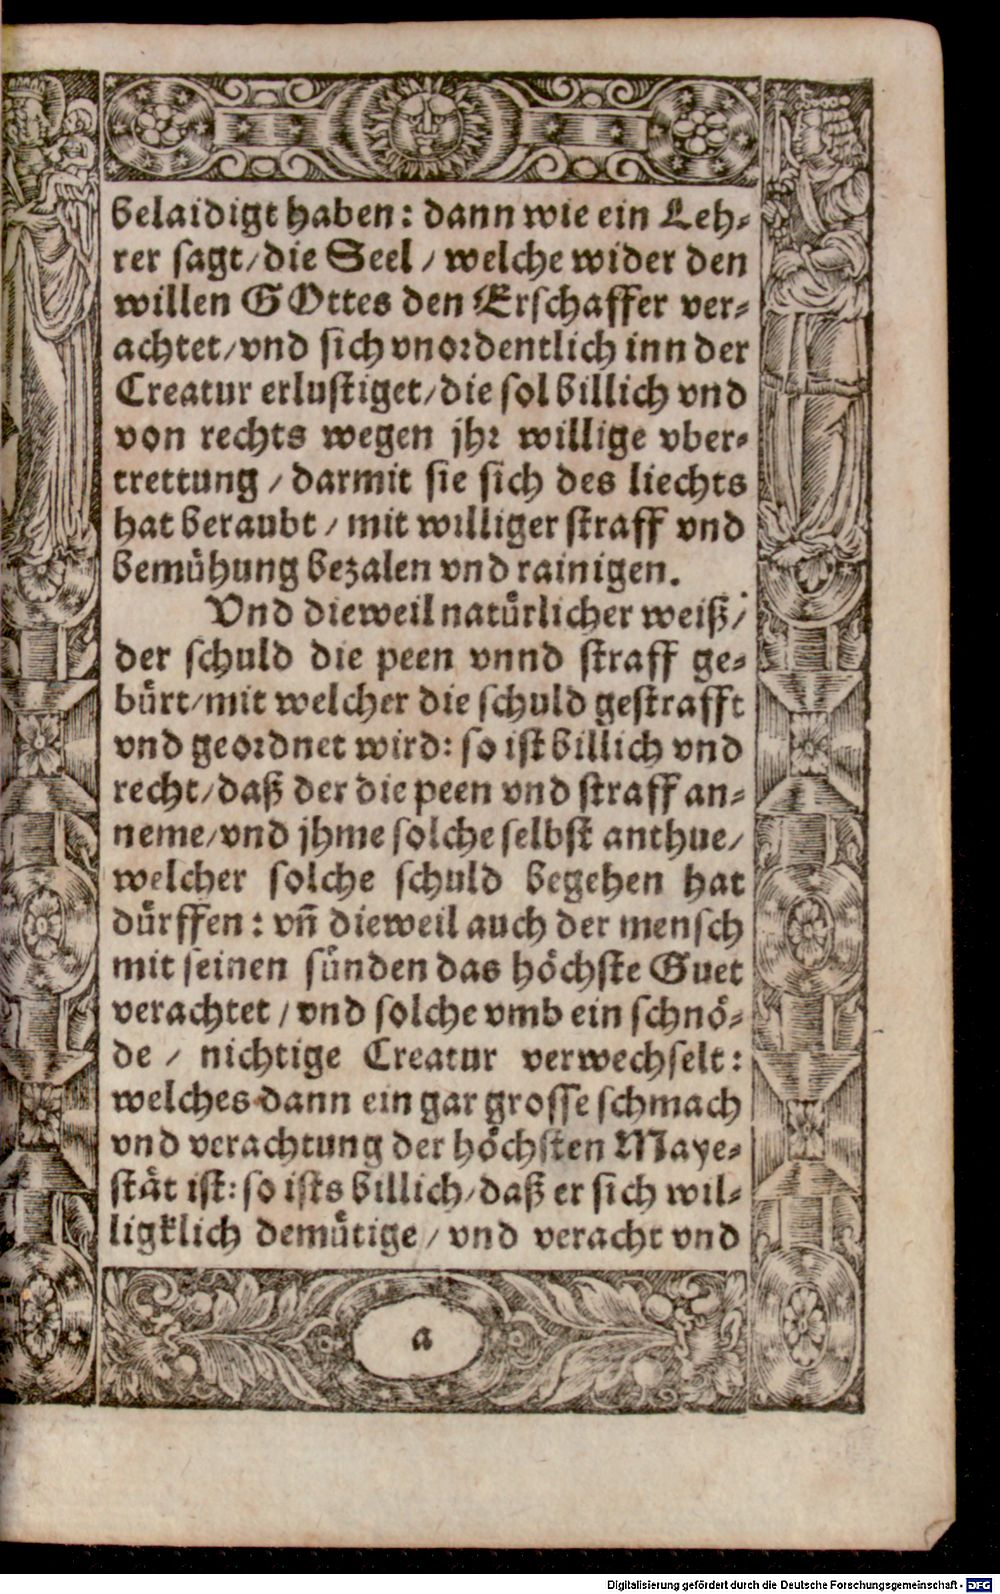 belaidigt haben: dann wie ein Leh⸗
rer sagt/die Seel / welche wider den
willen GOttes den Erschaffer ver⸗
achtet/vnd sich vnordentlich inn der
Creatur erlustiget/die sol billich vnd
von rechts wegen jhr willige vber⸗
trettung / darmit sie sich des liechts
hat beraubt / mit williger straff vnd
bemuͤhung bezalen vnd rainigen.
Vnd dieweil natuͤrlicher weiß/
der schuld die peen vnnd straff ge⸗
buͤrt/mit welcher die schuld gestrafft
vnd geordnet wird: so ist billich vnd
recht/daß der die peen vnd straff an⸗
neme/vnd jhme solche selbst anthue/
welcher solche schuld begehen hat
duͤrffen: vñ dieweil auch der mensch
mit seinen suͤnden das hoͤchste Guet
verachtet / vnd solche vmb ein schnoͤ⸗
de / nichtige Creatur verwechselt:
welches dann ein gar grosse schmach
vnd verachtung der hoͤchsten Maye⸗
staͤt ist: so ists billich/daß er sich wil⸗
ligklich demuͤtige / vnd veracht vnd
a
Digitalisierung gefördert durch die Deutsche Forschungsgemeinschaft - DFG